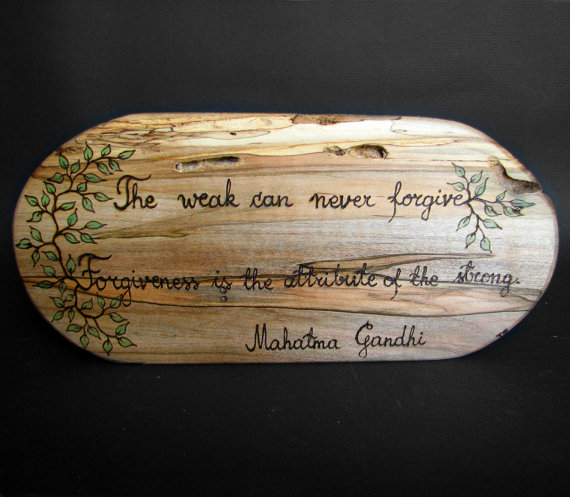 The weak can never forgive
Forgiveness is the attribute of the strong.
Mahatma Gandhi